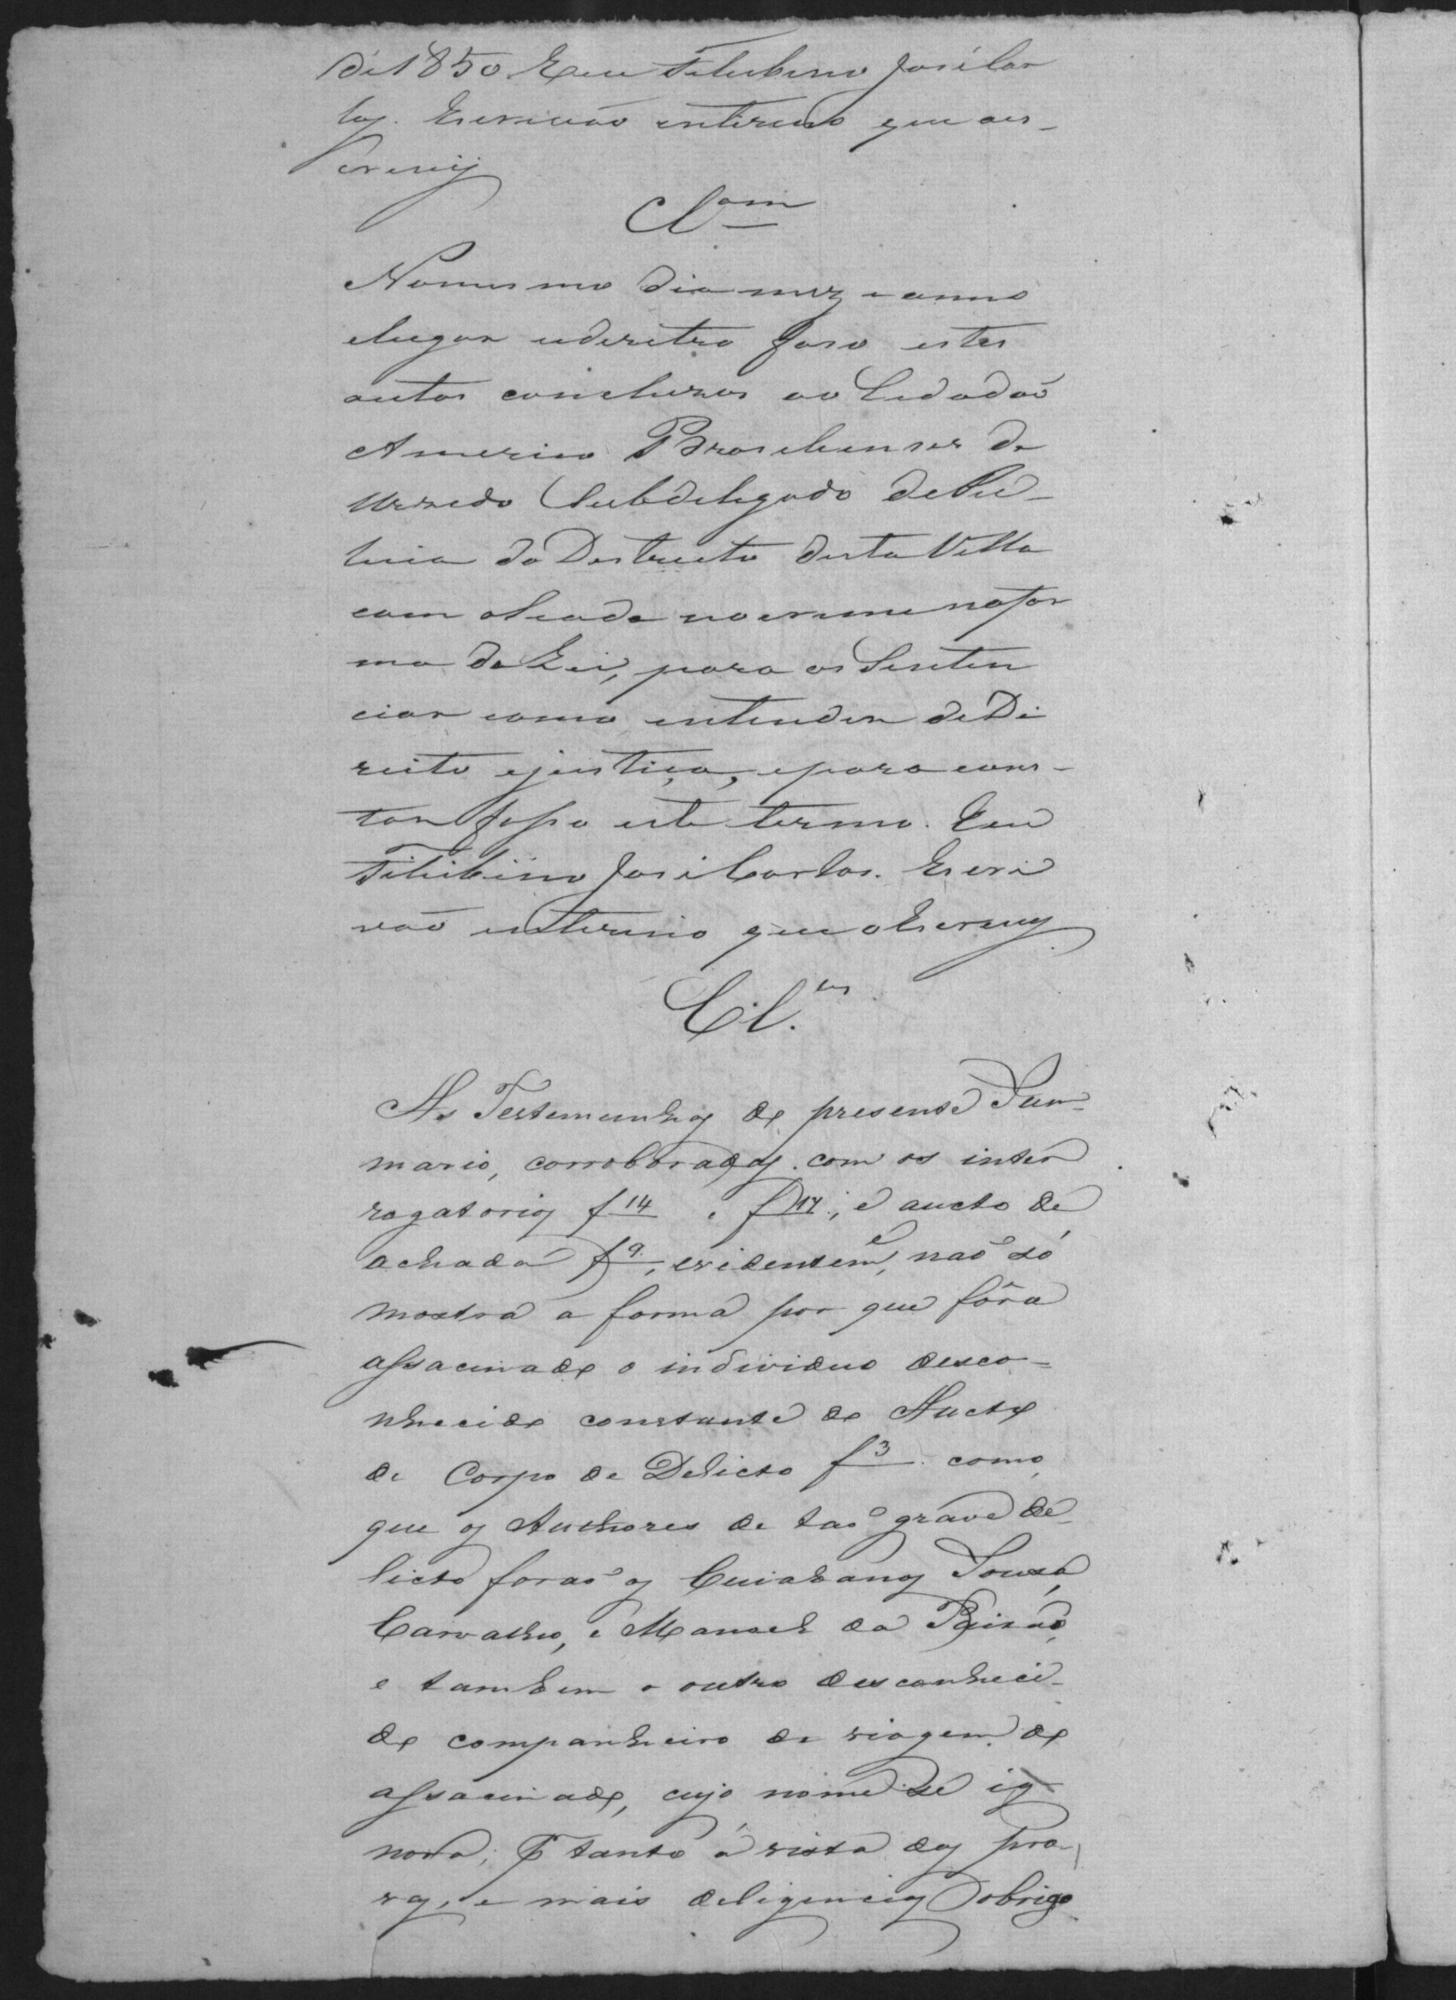 de 1850 Eu Felisbino José Car
los. Escrivaõ interino que aes-
crevij
Clsam
Nomesmo dia mez e anno
elugar udiritro faso estes
autos concluzos ao Cidadaõ
Americo Brasiliense de
Subdelegado dePu-
licia do Destrueto desta Villa
com alsada nocrime nafor
ma da Lei, para os Senten
ciar como entender deDi
reito ejustiça, epara cons-
tar fasso este termo. Eu
Felisbino José Carlos. Escri
vaõ interino que oEscrevy
Cl.os
As Testemunhas do presente Sum-
mario, corroboradas com os inter
rogatorios f 14 e f 17, e aucto de
achada f 9, evidentem.e, naõ só
mostra a forma por que fôra
assacinado o individuo desco-
nhecido constante do Aucto
de Corpo de Delicto f 3 como
que os Authores de taõ grave de-
licto foraõ os Cuiabanos Souza,
Carvalho, e Manoel da Paixaõ,
e tambem o outro desconheci-
do companheiro de viagem do
assacinado, cujo nome se ig
nora; P tanto á vista das pro-
vas, e mais deligencias obrigo